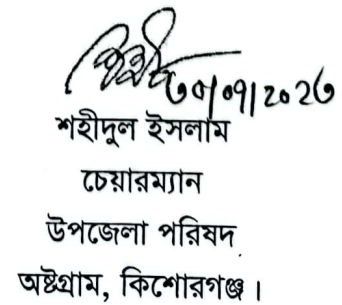 ৩০/০৭/২০২৩
শহীদুল ইসলাম
চেয়ারম্যান
উপজেলা পরিষদ
অষ্টগ্রাম, কিশোরগঞ্জ।